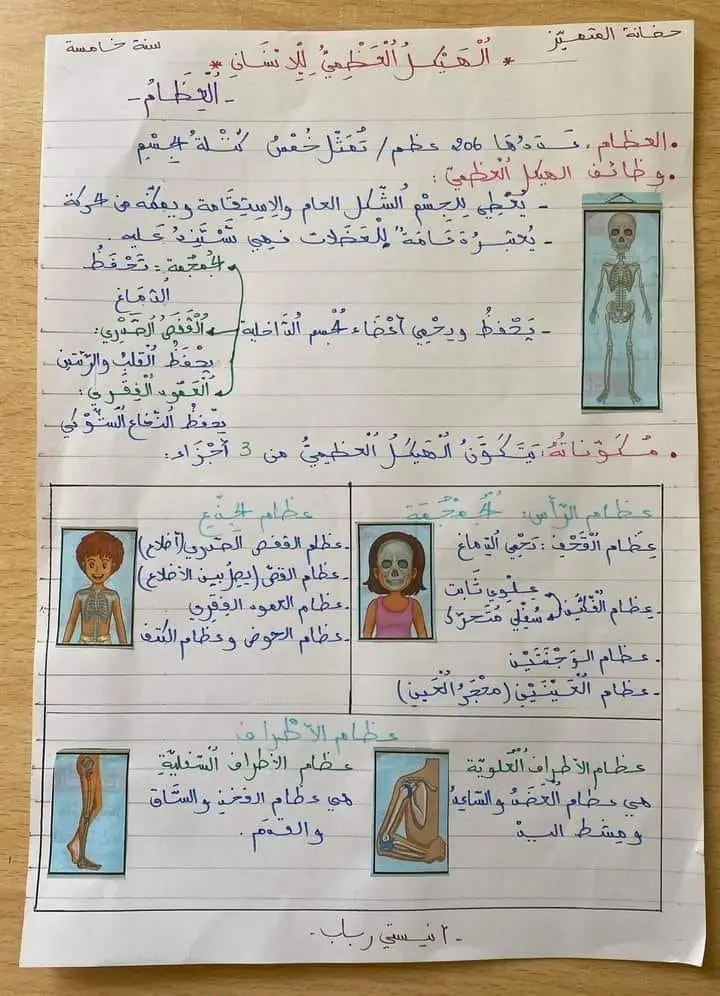 حضانة المتميّز
سنة خامسة
* الْهَيْكَلُ الْعَظْمِيُّ لِلْإِنْسَانِ *
- الْعِظَامُ -
• العظام: عَدَدُهَا 206 عظم / تُمَثِّلُ خُمُسُ كُتْلَةُ الجِسْمِ
• وظائف الهيكل العظميّ:
- يُعْطِي لِلجِسْمِ الشّكل العام والاِستِقامة ويمكّنه من الحركة
- يُعْتَبَرُ دَعَامَةً لِلْعَضَلات فهي تَسْتَنِدُ عليه.
- يَحْفظُ ويَحْمِي أعْضَاء الْجسم الدّاخلية
الجُمْجُمَة: تَحْفَظُ
الدّماغ
الْقَفَصُ الصَّدْرِي:
يحْفَظُ الْقلبُ والرّئتين
العَمُود الْفِقَرِي:
يحْفظ النّخاع الشّوكي
• مُكَوِّنَاتُهُ: يَتَكَوَّنُ الْهَيكَلُ الْعظميُّ من 3 أجْزَاء:
عظام الرّأس: الْجُمْجُمَة
عِظَام الْقَحْفِ: تَحْمِي الدِّمَاغ
عِظَام الْفَكَّيْنِ
عُلْوِي ثَابت
سُفْلِي مُتَحَرِّك
- عظام الوَجْنَتَيْن
- عظام الْعَيْنَيْنِ (مَحْجَرُ الْعَين)
عظام الجِذْعِ
- عظام القفص الصّدري (أضلاع)
- عظام القصّ (يصِلُ بين الأضلاع)
- عظام العمود الفِقري
- عظام الحوض وعظام الكتف
عظام الأطْراف
عظام الأطراف الْعُلويّة
هي عظام الْعَضُد والسّاعِدُ
ومِشط اليد
عظام الأطراف السّفليّة
هي عظام الفخذ والسّاق
والقدم.
- أنيستي رباب -